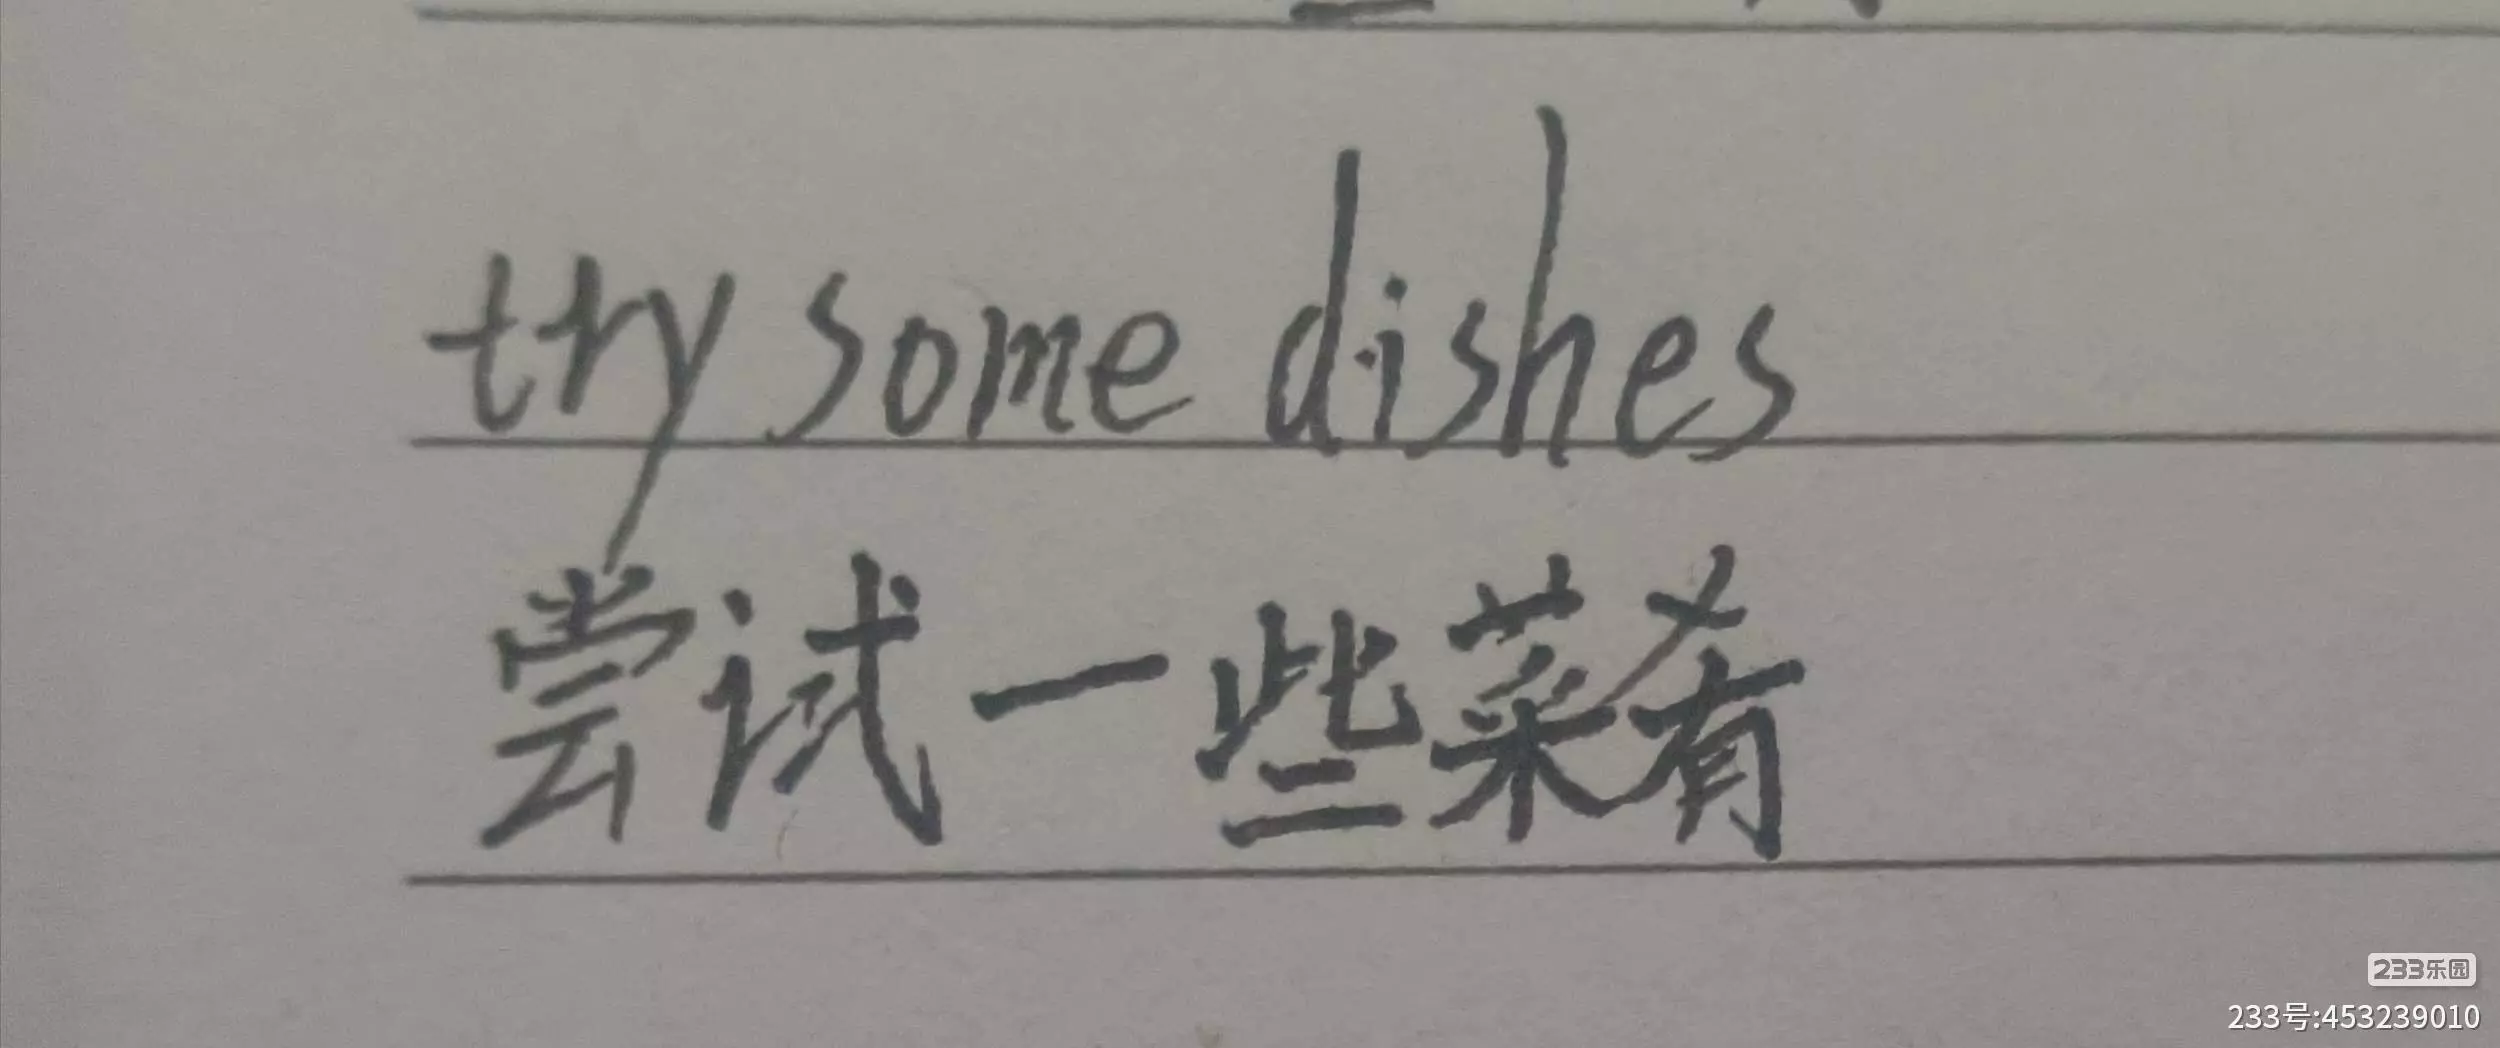 try some dishes
尝试一些菜肴
233乐园
233号:453239010